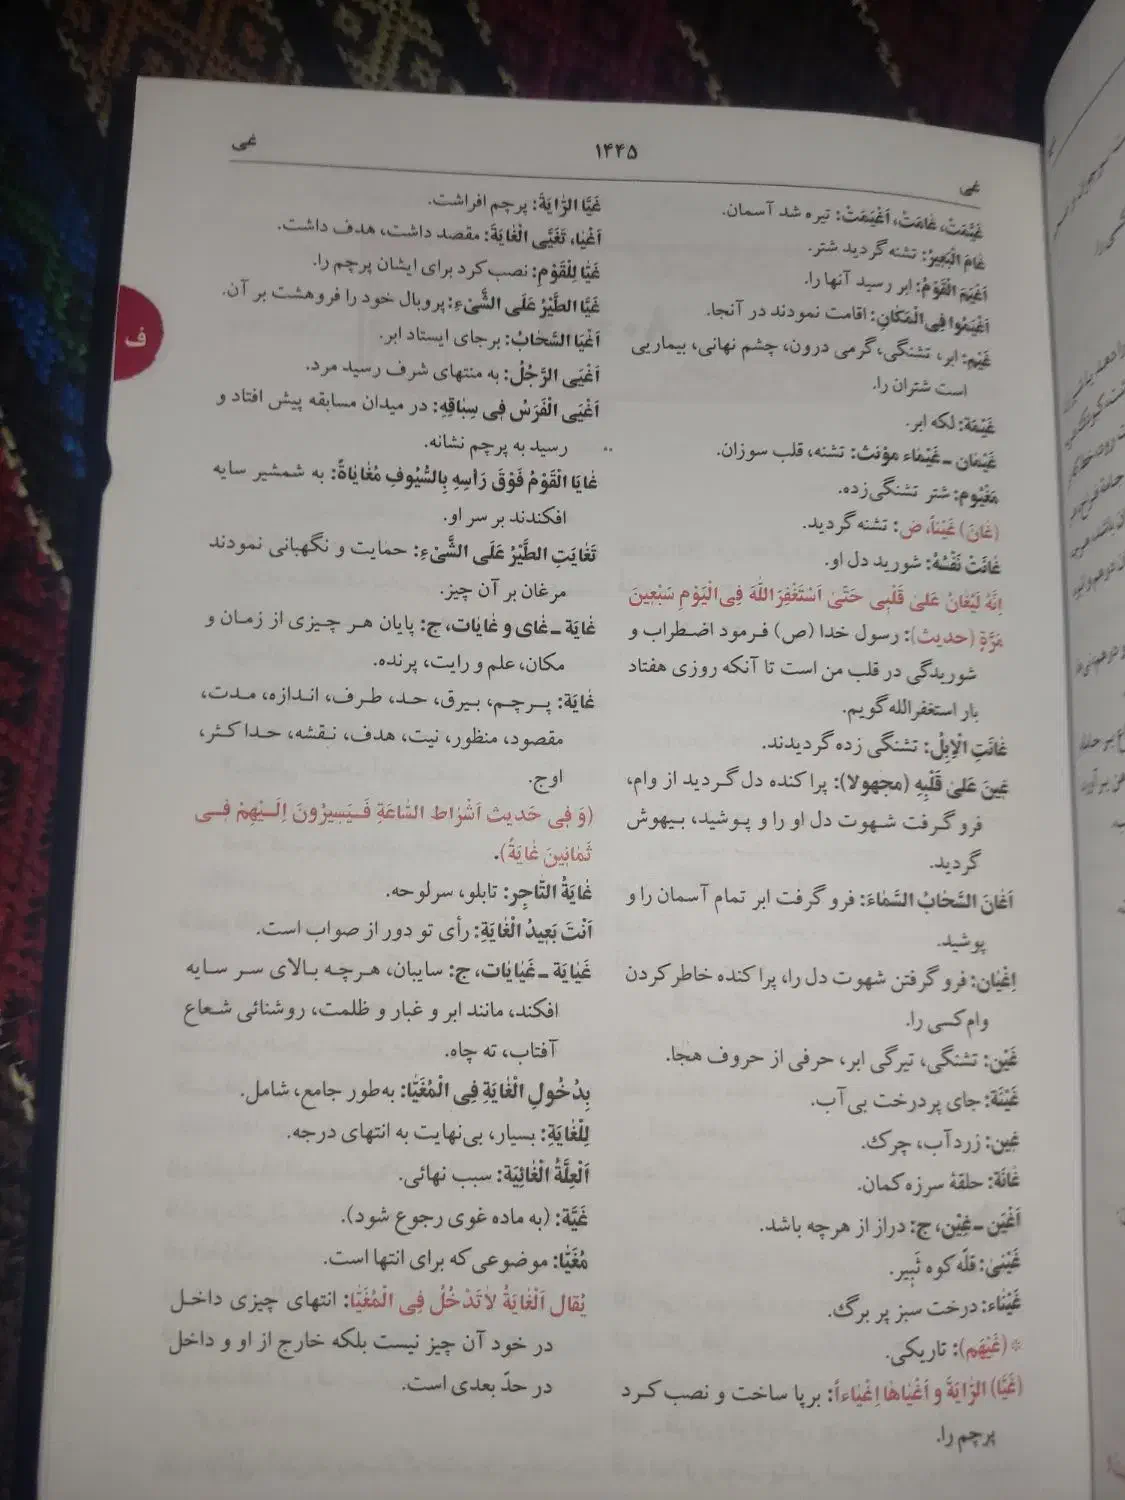 غی
۱۴۴۵
غی
غَیَّمَتْ، غامَتْ، اَغْیَمَتْ: تیره شد آسمان.
غامَ الْبَعیرُ: تشنه گردید شتر.
اَغْیَمَ الْقَوْمُ: ابر رسید آنها را.
اَغْیَمُوا فِی الْمَکانِ: اقامت نمودند در آنجا.
غَیْم: ابر، تشنگی، گرمی درون، چشم نهانی، بیماریی
است شتران را.
غَیْمَة: لکه ابر.
غَیْمان ـ غَیْماء مؤنث: تشنه، قلب سوزان.
مَغْیُوم: شتر تشنگی‌زده.
(غانَ) غَیْناً، ض: تشنه گردید.
غانَتْ نَفْسُهُ: شورید دل او.
اِنَّهُ لَیُغانُ عَلیٰ قَلْبی حَتّیٰ اَسْتَغْفِرَاللّٰهَ فِی الْیَوْمِ سَبْعینَ
مَرَّةٍ (حدیث): رسول خدا (ص) فرمود اضطراب و
شوریدگی در قلب من است تا آنکه روزی هفتاد
بار استغفرالله گویم.
غانَتِ الْاِبِلُ: تشنگی زده گردیدند.
غینَ عَلیٰ قَلْبِهِ (مجهولا): پراکنده دل گردید از وام،
فرو گرفت شهوت دل او را و پوشید، بیهوش
گردید.
اَغانَ السَّحابُ السَّماءَ: فرو گرفت ابر تمام آسمان را و
پوشید.
اِغْیان: فرو گرفتن شهوت دل را، پراکنده خاطر کردن
وام کسی را.
غَیْن: تشنگی، تیرگی ابر، حرفی از حروف هجا.
غَیْنَة: جای پر درخت بی‌آب.
غین: زردآب، چرک.
غانَة: حلقهٔ سرزه کمان.
اَغْیَن ـ غِیْن، ج: دراز از هرچه باشد.
غَیْنیٰ: قلّه کوه ثَبیر.
غَیْناء: درخت سبز پر برگ.
* (غَیْهَم): تاریکی.
(غَیّا) الرّایَةَ و اَغْیاها اِغْیاءاً: برپا ساخت و نصب کرد
پرچم را.
غَیَّا الرّایَةَ: پرچم افراشت.
اَغْیا، تَغَیَّی الْغایَةَ: مقصد داشت، هدف داشت.
غَیّا لِلْقَوْمِ: نصب کرد برای ایشان پرچم را.
غَیَّا الطَّیْرُ عَلَی الشَّیْءِ: پروبال خود را فروهشت بر آن.
اَغْیَا السَّحابُ: برجای ایستاد ابر.
اَغْیَی الرَّجُلُ: به منتهای شرف رسید مرد.
اَغْیَی الْفَرَسُ فی سِباقِهِ: در میدان مسابقه پیش افتاد و
رسید به پرچم نشانه.
غایَا الْقَوْمُ فَوْقَ رَأسِهِ بِالسُّیُوفِ مُغایاةً: به شمشیر سایه
افکندند بر سر او.
تَغایَتِ الطَّیْرُ عَلَی الشَّیْءِ: حمایت و نگهبانی نمودند
مرغان بر آن چیز.
غایَة ـ غای و غایات، ج: پایان هر چیزی از زمان و
مکان، علم و رایت، پرنده.
غایَة: پرچم، بیرق، حد، طرف، اندازه، مدت،
مقصود، منظور، نیت، هدف، نقشه، حداکثر،
اوج.
(وَ فی حَدیث اَشْراط السّاعَةِ فَیَسیرُونَ اِلَیْهِمْ فی
ثَمانینَ غایَةً).
غایَةُ التّاجِر: تابلو، سرلوحه.
اَنْتَ بَعیدُ الْغایَةِ: رأی تو دور از صواب است.
غَیایَة ـ غَیایات، ج: سایبان، هرچه بالای سر سایه
افکند، مانند ابر و غبار و ظلمت، روشنائی شعاع
آفتاب، ته چاه.
بِدُخُولِ الْغایَةِ فِی الْمُغَیّا: به‌طور جامع، شامل.
لِلْغایَةِ: بسیار، بی‌نهایت به انتهای درجه.
اَلْعِلَّةُ الْغائِیَة: سبب نهائی.
غَیَّة: (به ماده غوی رجوع شود).
مُغَیّا: موضوعی که برای انتها است.
یُقال اَلْغایَةُ لاتَدْخُلُ فِی الْمُغَیّا: انتهای چیزی داخل
در خود آن چیز نیست بلکه خارج از او و داخل
در حدّ بعدی است.
ف